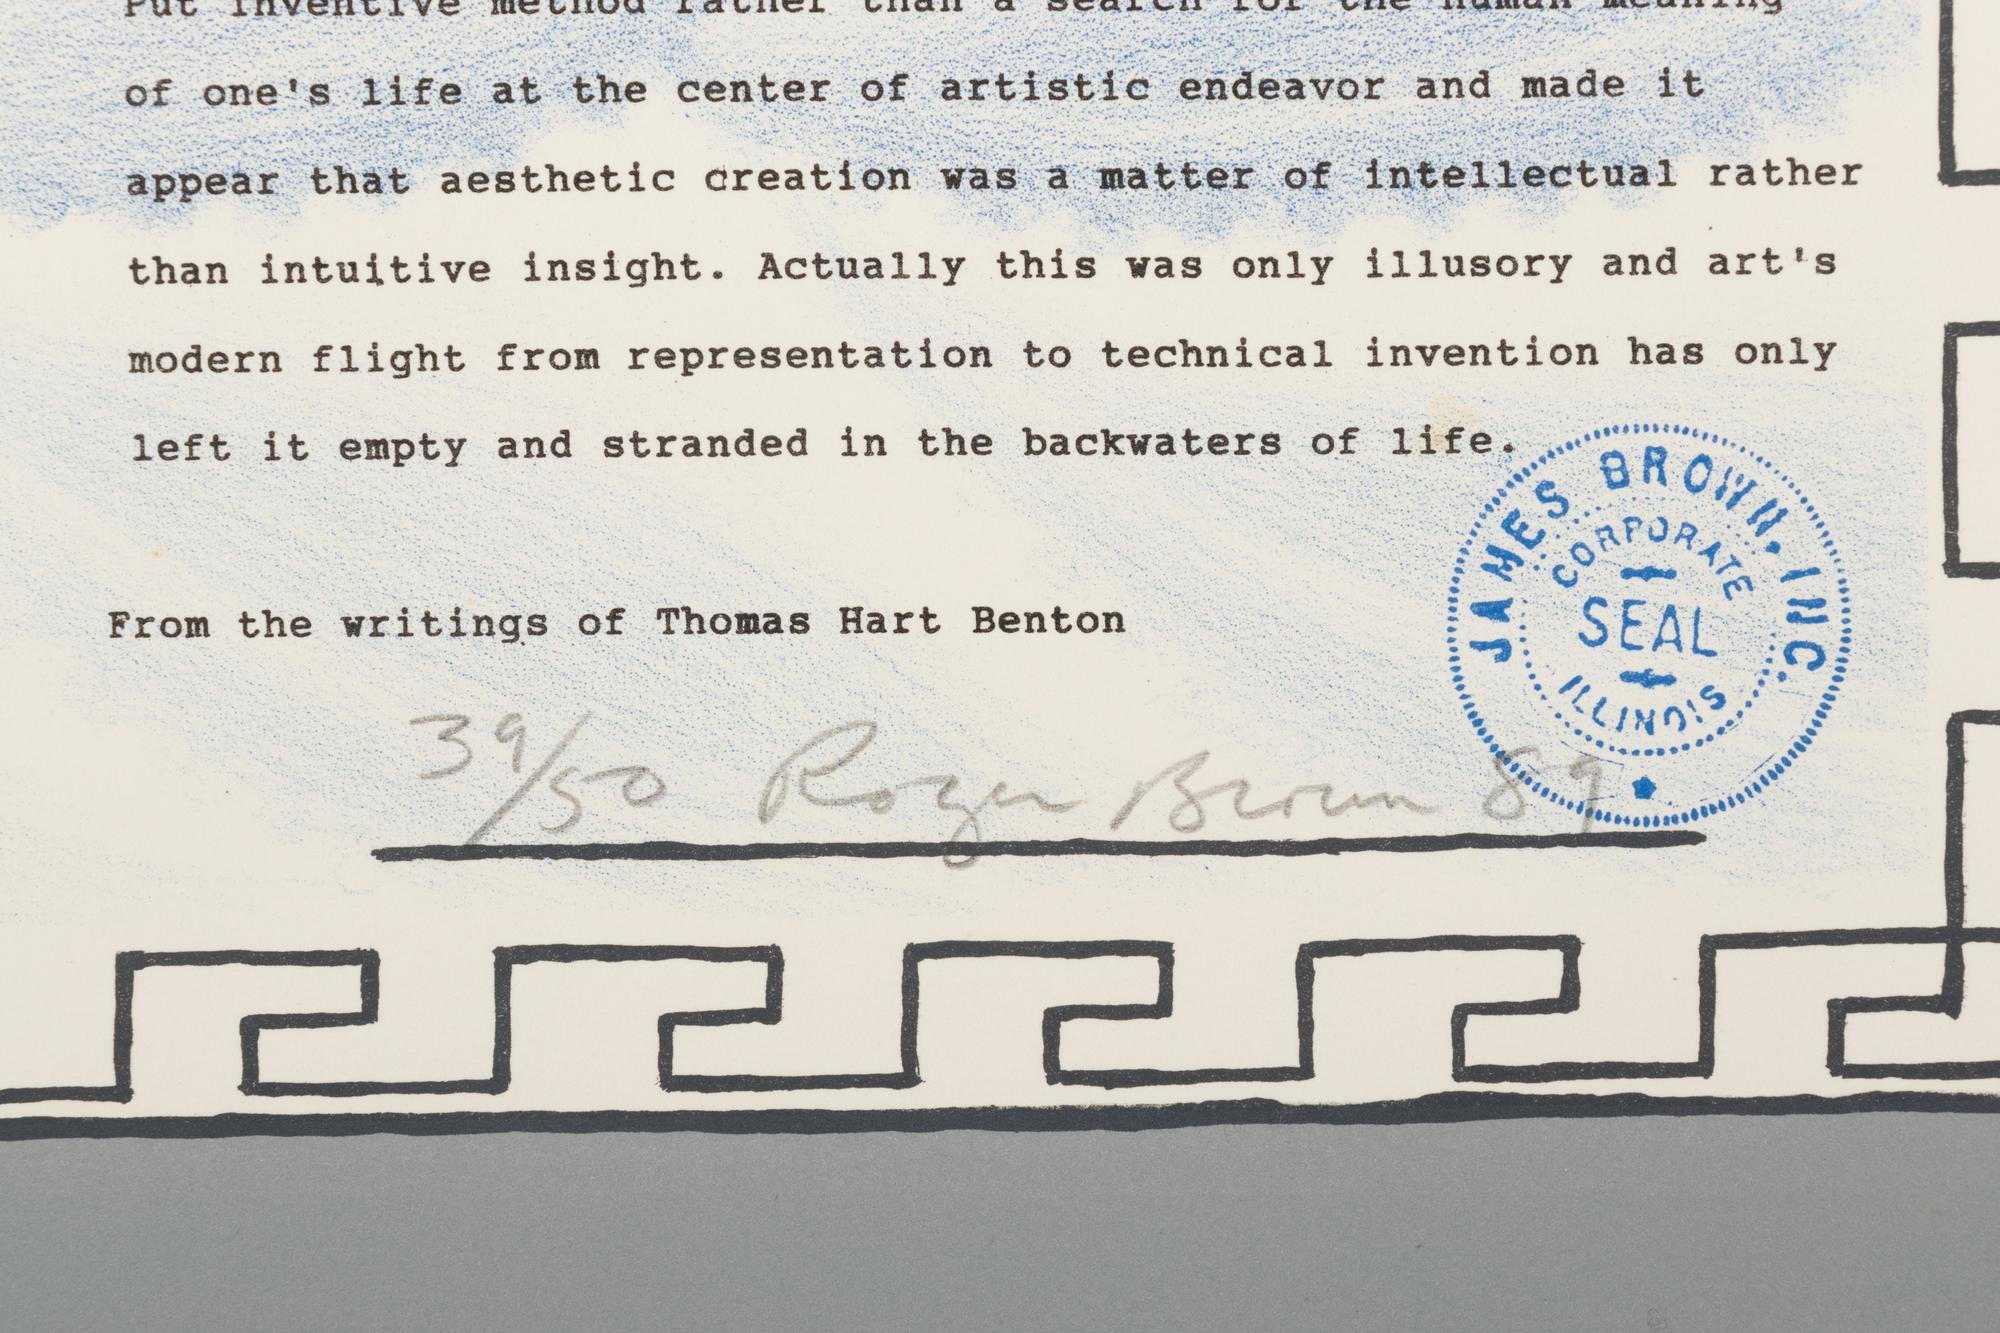 Put inventive method rather than a search for the human meaning
of one's life at the center of artistic endeavor and made it
appear that aesthetic creation was a matter of intellectual rather
than intuitive insight. Actually this was only illusory and art's
modern flight from representation to technical invention has only
left it empty and stranded in the backwaters of life.
JAMES BROWN, INC.
CORPORATE
SEAL
ILLINOIS
From the writings of Thomas Hart Benton
39/50 Roger Brown 89